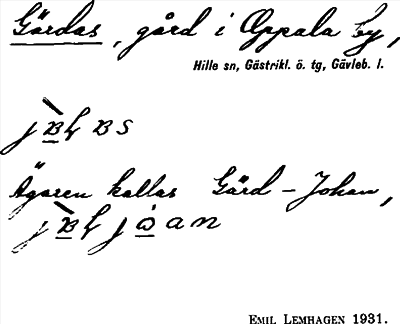 Gärdas, gård i Oppala by,
Hille sn, Gästrikl. ö. tg, Gävleb. l.
Ägaren kallas Gärd-Johan,
EMIL LEMHAGEN 1931.